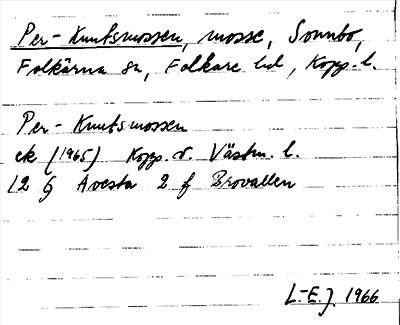 Per-Knutsmossen, mosse, Sonnbo,
Folkärna sn, Folkare hd, Kopp. l.
Per-Knutsmossen
ek (1965) Kopp. o. Västm. l.
12 G Avesta 2 f Brovallen
L.-E.J. 1966